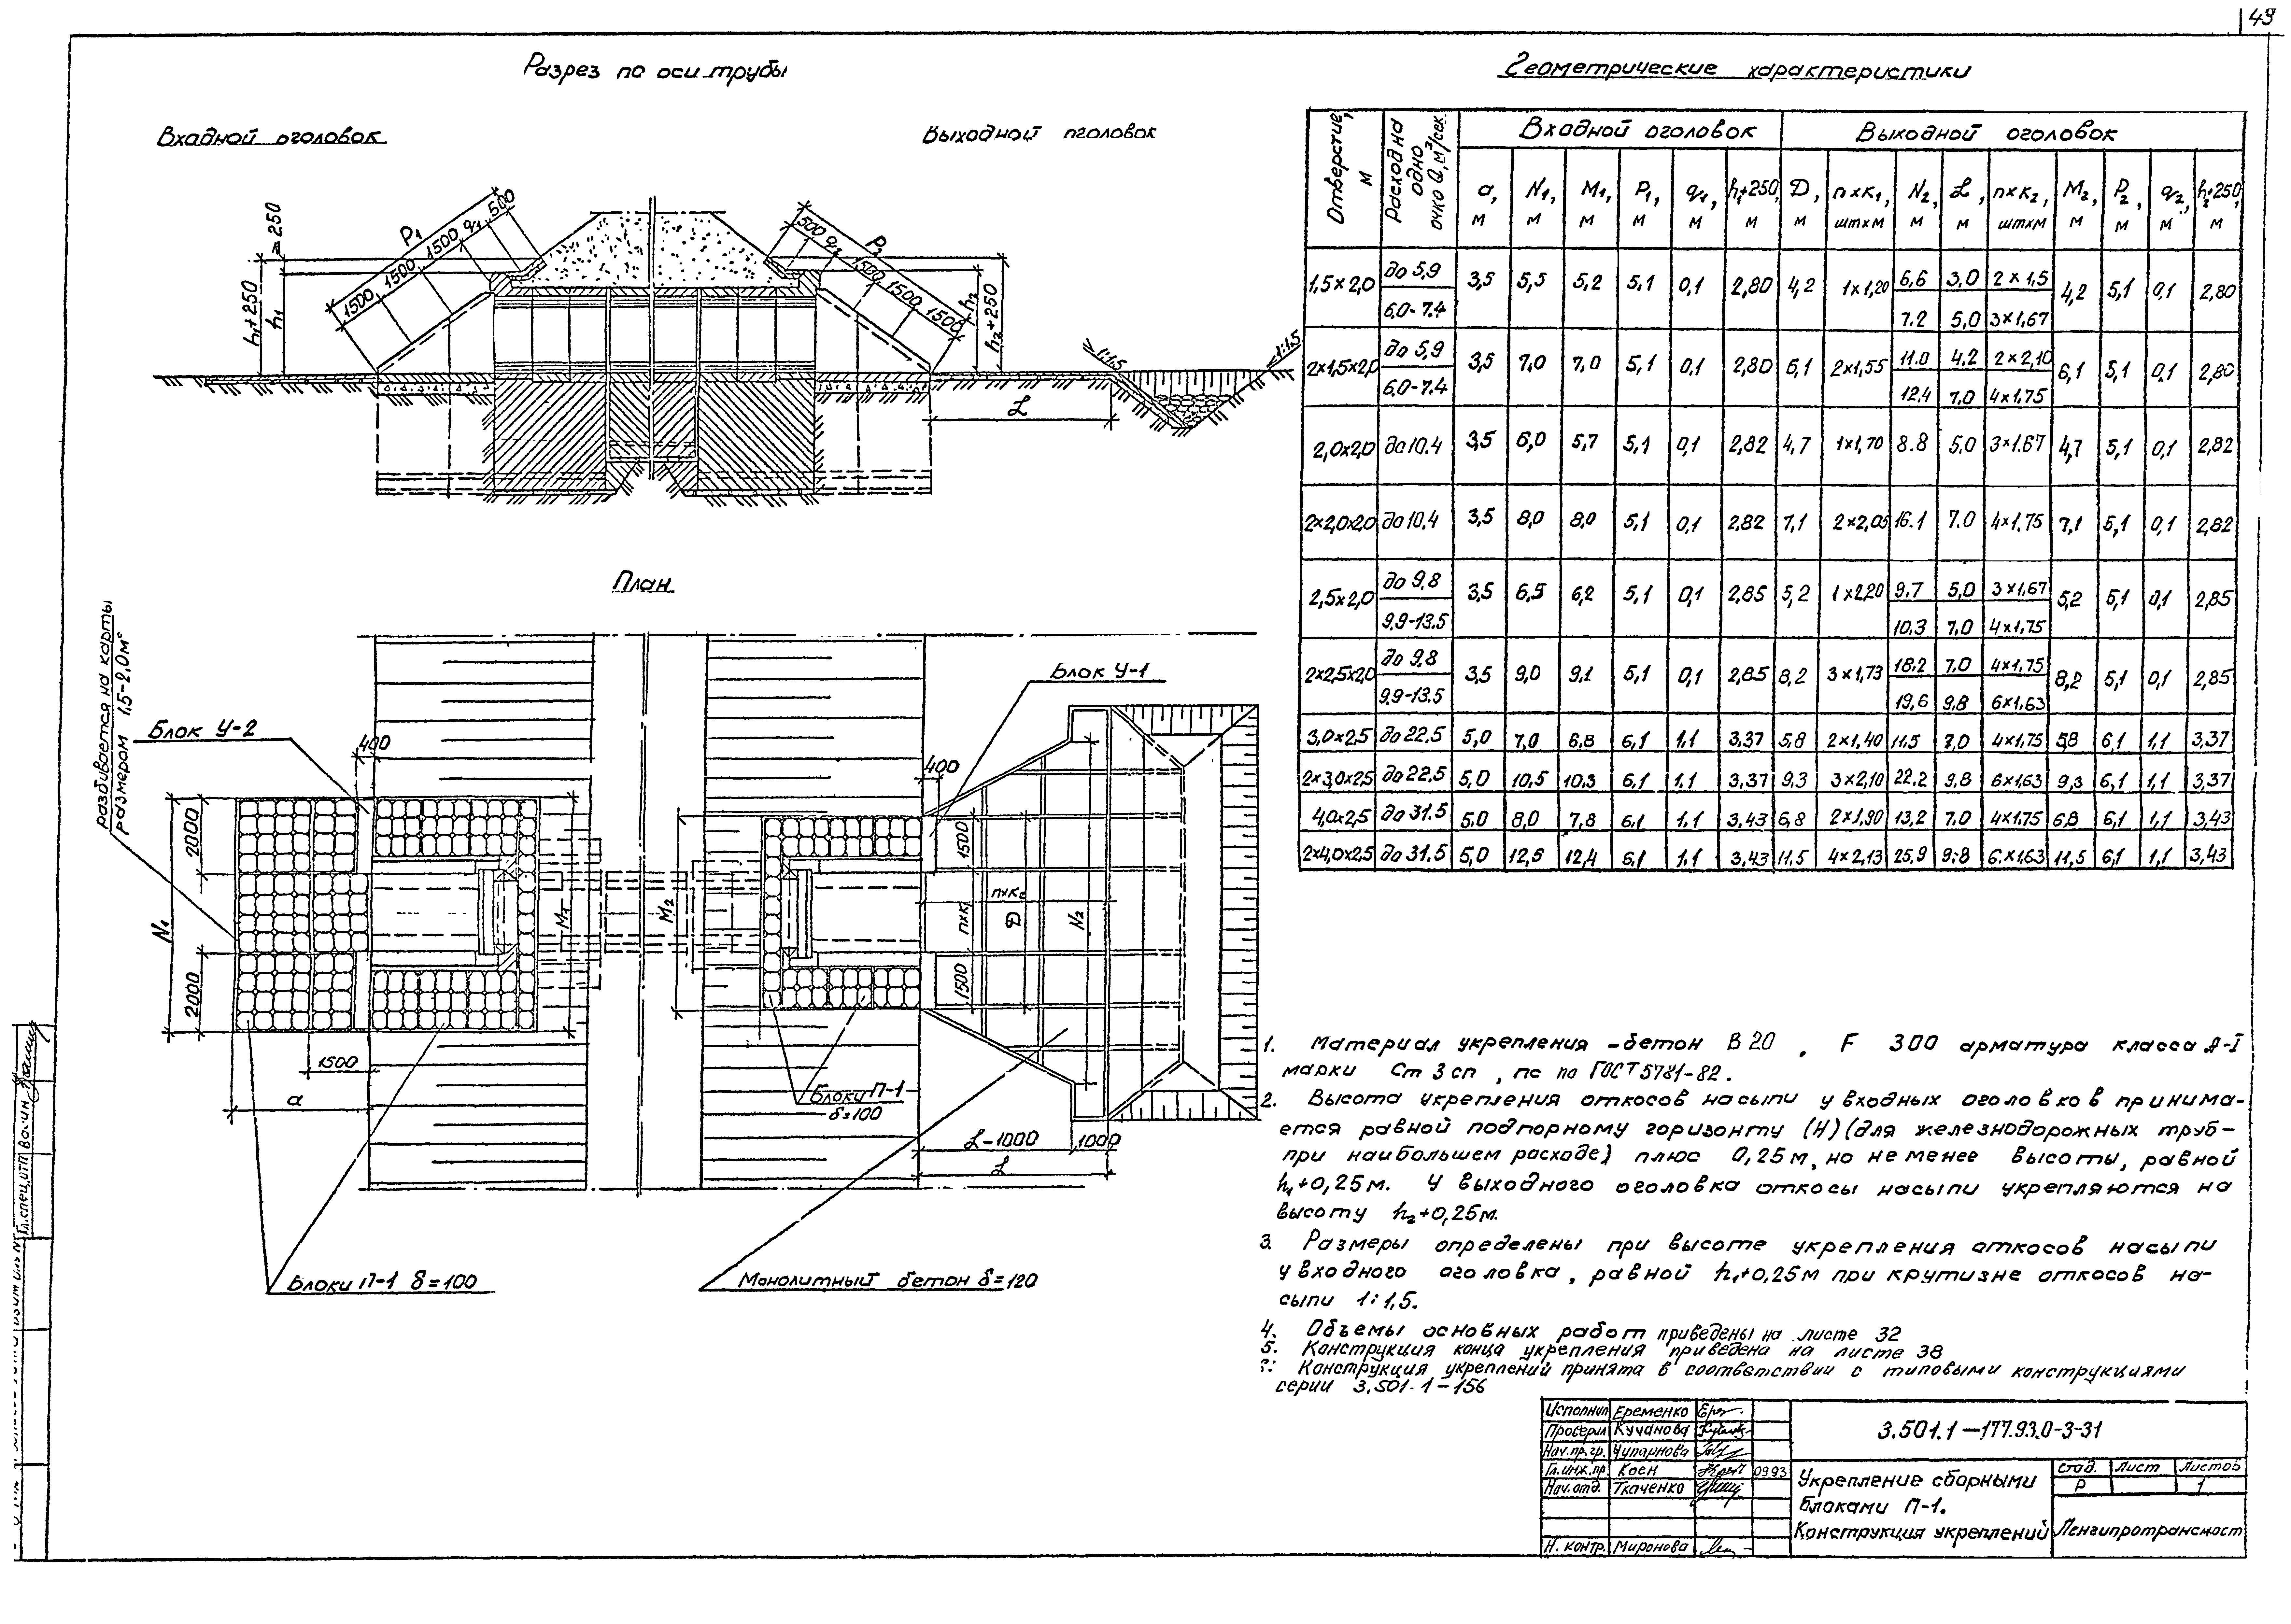 49
Разрез по оси трубы
Входной оголовок
Выходной оголовок
P₁
1500 1500 1500 q₁ 500
≈ 250
h₁+250
h₁
500 q₂ 1500 1500 1500
P₂
h₂
h₂+250
1:1,5
1:1,5
L
План
разбивается на карты
размером 1,5-2,0м²
Блок У-2
Блок У-1
400
400
2000
2000
N₁
M₁
M₂
1500
1500
n×k₁
n×k₂
D
N₂
1500
a
Блоки П-1
δ=100
L-1000
1000
L
Блоки П-1 δ=100
Монолитный бетон δ=120
Геометрические характеристики
Отверстие, м | Расход на одно очко Q, м³/сек | Входной оголовок | Выходной оголовок
a, м | N₁, м | M₁, м | P₁, м | q₁, м | h₁+250, м | D, м | n×k₁, шт×м | N₂, м | L, м | n×k₂, шт×м | M₂, м | P₂, м | q₂, м | h₂+250, м
1,5×2,0 | до 5,9 | 3,5 | 5,5 | 5,2 | 5,1 | 0,1 | 2,80 | 4,2 | 1×1,20 | 6,6 | 3,0 | 2×1,5 | 4,2 | 5,1 | 0,1 | 2,80
6,0-7.4 | 7.2 | 5,0 | 3×1,67
2×1,5×2,0 | до 5,9 | 3,5 | 7,0 | 7,0 | 5,1 | 0,1 | 2,80 | 6,1 | 2×1,55 | 11.0 | 4.2 | 2×2,10 | 6,1 | 5,1 | 0,1 | 2,80
6.0-7.4 | 12.4 | 7,0 | 4×1,75
2,0×2,0 | до 10.4 | 3,5 | 6,0 | 5,7 | 5,1 | 0,1 | 2,82 | 4,7 | 1×1,70 | 8.8 | 5.0 | 3×1.67 | 4,7 | 5,1 | 0,1 | 2,82
2×2,0×2,0 | до 10,4 | 3,5 | 8,0 | 8,0 | 5,1 | 0,1 | 2,82 | 7,1 | 2×2,05 | 16.1 | 7.0 | 4×1,75 | 7,1 | 5,1 | 0,1 | 2,82
2,5×2,0 | до 9,8 | 3,5 | 6,5 | 6,2 | 5,1 | 0,1 | 2,85 | 5,2 | 1×2,20 | 9.7 | 5,0 | 3×1,67 | 5,2 | 5,1 | 0,1 | 2,85
9.9-13.5 | 10.3 | 7,0 | 4×1,75
2×2,5×2,0 | до 9,8 | 3,5 | 9,0 | 9,1 | 5,1 | 0,1 | 2,85 | 8,2 | 3×1,73 | 18.2 | 7.0 | 4×1.75 | 8,2 | 5,1 | 0,1 | 2,85
9.9-13.5 | 19,6 | 9,8 | 6×1,63
3,0×2,5 | до 22.5 | 5,0 | 7,0 | 6.8 | 6,1 | 1,1 | 3,37 | 5,8 | 2×1,40 | 11,5 | 7,0 | 4×1,75 | 5,8 | 6,1 | 1,1 | 3,37
2×3,0×2,5 | до 22.5 | 5.0 | 10,5 | 10,3 | 6,1 | 1,1 | 3,37 | 9,3 | 3×2,10 | 22.2 | 9,8 | 6×1,63 | 9,3 | 6,1 | 1,1 | 3,37
4,0×2,5 | до 31.5 | 5.0 | 8,0 | 7,8 | 6,1 | 1,1 | 3,43 | 6,8 | 2×1,90 | 13,2 | 7,0 | 4×1,75 | 6,8 | 6,1 | 1,1 | 3,43
2×4,0×2,5 | до 31.5 | 5,0 | 12,5 | 12,4 | 6,1 | 1,1 | 3,43 | 11,5 | 4×2,13 | 25,9 | 9,8 | 6×1,63 | 11,5 | 6,1 | 1,1 | 3,43
1. Материал укрепления - бетон В 20 , F 300 арматура класса А-I
марки Ст 3 сп , пс по ГОСТ 5781-82.
2. Высота укрепления откосов насыпи у входных оголовков принима-
ется равной подпорному горизонту (Н) (для железнодорожных труб-
при наибольшем расходе) плюс 0,25м, но не менее высоты, равной
h₁+0,25м. У выходного оголовка откосы насыпи укрепляются на
высоту h₂+0,25м.
3. Размеры определены при высоте укрепления откосов насыпи
у входного оголовка, равной h₁+0,25м при крутизне откосов на-
сыпи 1:1,5.
4. Объемы основных работ приведены на листе 32
5. Конструкция конца укрепления приведена на листе 38
Конструкция укреплений принята в соответствии с типовыми конструкциями
серии 3.501.1-156
Исполнил Еременко
Проверил Кучанова
Нач.пр.гр. Чупарнова
Гл.инж.пр. Коен 09.93
Нач.отд. Ткаченко
Н. контр. Миронова
3.501.1-177.93.0-3-31
Укрепление сборными
блоками П-1.
Конструкция укреплений
стад. Лист Листов
Р 1
Ленгипротрансмост
Гл.спец.ОТП